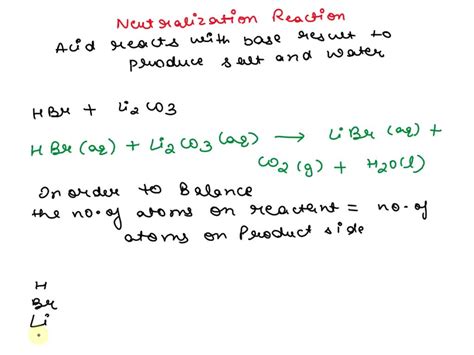 Neutralization Reaction
Acid reacts with base result to
produce salt and water
HBr + Li2CO3
HBr (aq) + Li2CO3 (aq) → LiBr (aq) +
CO2 (g) + H2O(l)
In order to Balance
the no. of atoms on reactant = no. of
atoms on Product side
H
Br
Li